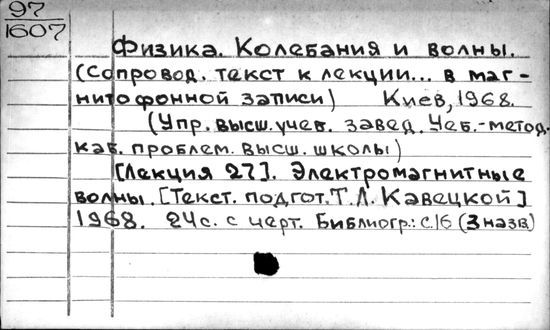 97
1607
Физика. Колебания и волны.
(Сопровод. текст к лекции... в маг-
нитофонной записи) Киев, 1968.
(Упр. высш. учеб. завед. Учеб.-метод.
каб. проблем. высш. школы)
[Лекция 27]. Электромагнитные
волны. [Текст. подгот. Т.Л. Кавецкой]
1968. 24с. с черт. Библиогр.: с.16 (3 назв)